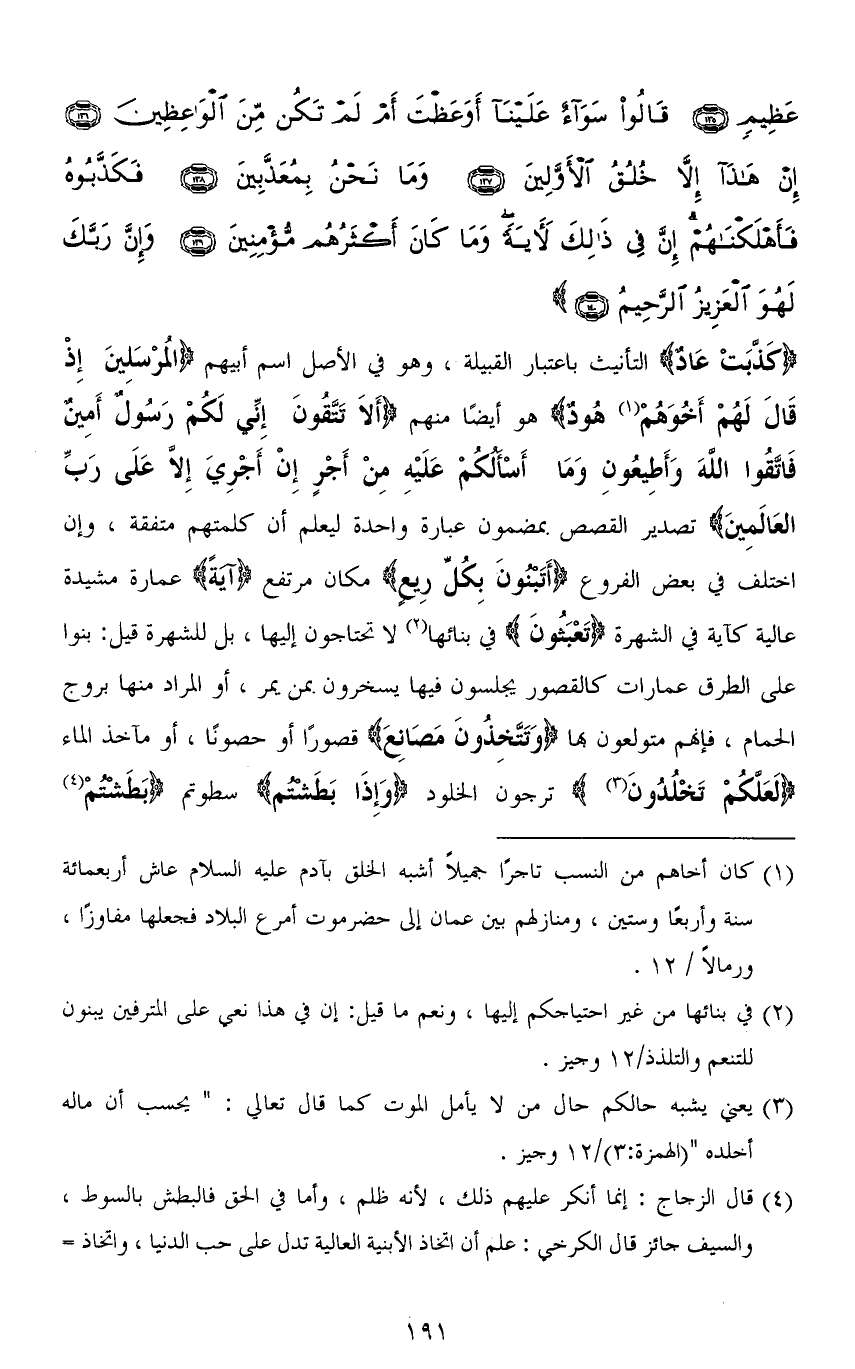 عَظِيمٍ ﴿١٣٥﴾ قَالُواْ سَوَآءٌ عَلَيْنَآ أَوَعَظْتَ أَمْ لَمْ تَكُن مِّنَ ٱلْوَٰعِظِينَ ﴿١٣٦﴾
إِنْ هَـٰذَآ إِلَّا خُلُقُ ٱلْأَوَّلِينَ ﴿١٣٧﴾ وَمَا نَحْنُ بِمُعَذَّبِينَ ﴿١٣٨﴾ فَكَذَّبُوهُ
فَأَهْلَكْنَـٰهُمْ ۗ إِنَّ فِى ذَٰلِكَ لَأَيَةً ۖ وَمَا كَانَ أَكْثَرُهُم مُّؤْمِنِينَ ﴿١٣٩﴾ وَإِنَّ رَبَّكَ
لَهُوَ ٱلْعَزِيزُ ٱلرَّحِيمُ ﴿١٤٠﴾ ﴾
﴿كَذَّبَتْ عَادٌ﴾ التأنيث باعتبار القبيلة ، وهو في الأصل اسم أبيهم ﴿الْمُرْسَلِينَ إِذْ
قَالَ لَهُمْ أَخُوَهُمْ(١) هُودٌ﴾ هو أيضًا منهم ﴿أَلاَ تَتَّقُونَ إِنِّي لَكُمْ رَسُولٌ أَمِينٌ
فَاتَّقُوا اللَّهَ وَأَطِيعُونِ وَمَا أَسْأَلُكُمْ عَلَيْهِ مِنْ أَجْرٍ إِنْ أَجْرِيَ إِلاَّ عَلَى رَبِّ
العَالَمِينَ﴾ تصدير القصص بمضمون عبارة واحدة ليعلم أن كلمتهم متفقة ، وإن
اختلف في بعض الفروع ﴿أَتَبْنُونَ بِكُلِّ رِيعٍ﴾ مكان مرتفع ﴿آيَةً﴾ عمارة مشيدة
عالية كآية في الشهرة ﴿تَعْبَثُونَ ﴾ في بنائها(٢) لا تحتاجون إليها ، بل للشهرة قيل: بنوا
على الطرق عمارات كالقصور يجلسون فيها يسخرون بمن يمر ، أو المراد منها بروج
الحمام ، فإنهم متولعون بها ﴿وَتَتَّخِذُونَ مَصَانِعَ﴾ قصورًا أو حصونًا ، أو مآخذ الماء
﴿لَعَلَّكُمْ تَخْلُدُونَ(٣) ﴾ ترجون الخلود ﴿وَإِذَا بَطَشْتُم﴾ سطوتم ﴿بَطَشْتُمْ(٤)
(١) كان أخاهم من النسب تاجرًا جميلاً أشبه الخلق بآدم عليه السلام عاش أربعمائة
سنة وأربعًا وستين ، ومنازلهم بين عمان إلى حضرموت أمرع البلاد فجعلها مفاوزًا ،
ورمالاً / ١٢ .
(٢) في بنائها من غير احتياجكم إليها ، ونعم ما قيل: إن في هذا نعي على المترفين يبنون
للتنعم والتلذذ/١٢ وجيز .
(٣) يعني يشبه حالكم حال من لا يأمل الموت كما قال تعالي : " يحسب أن ماله
أخلده "(الهمزة:٣)/١٢ وجيز .
(٤) قال الزجاج : إنما أنكر عليهم ذلك ، لأنه ظلم ، وأما في الحق فالبطش بالسوط ،
والسيف جائز قال الكرخي : علم أن اتخاذ الأبنية العالية تدل على حب الدنيا ، واتخاذ =
١٩١